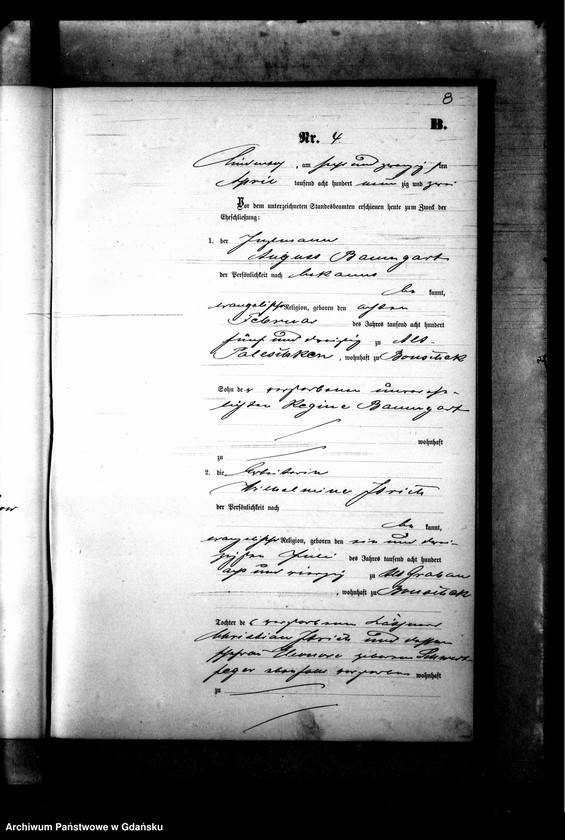 8
B.
Nr. 4.
, am sechs und zwanzigsten
April tausend acht hundert neun zig und zwei
Vor dem unterzeichneten Standesbeamten erschienen heute zum Zweck der
Eheschließung:
1. der
August Baumgart
der Persönlichkeit nach bekannt
be kannt,
evangelischer Religion, geboren den achten
Februar des Jahres tausend acht hundert
fünf und dreißig zu Alt-
Paleschken, wohnhaft zu Bouschek
Sohn der verstorbenen unverehe-
lichten Regine Baumgart
wohnhaft
zu
2. die Arbeiterin
Wilhelmine
der Persönlichkeit nach
be kannt,
evangelischer Religion, geboren den ein und drei-
ßigsten Juli des Jahres tausend acht hundert
acht und vierzig zu Alt Grabau
, wohnhaft zu Bouschek
Tochter des verstorbenen
Christian und dessen
Ehefrau Eleonore geborene Schwert-
feger ebenfalls verstorben wohnhaft
zu
Archiwum Państwowe w Gdańsku